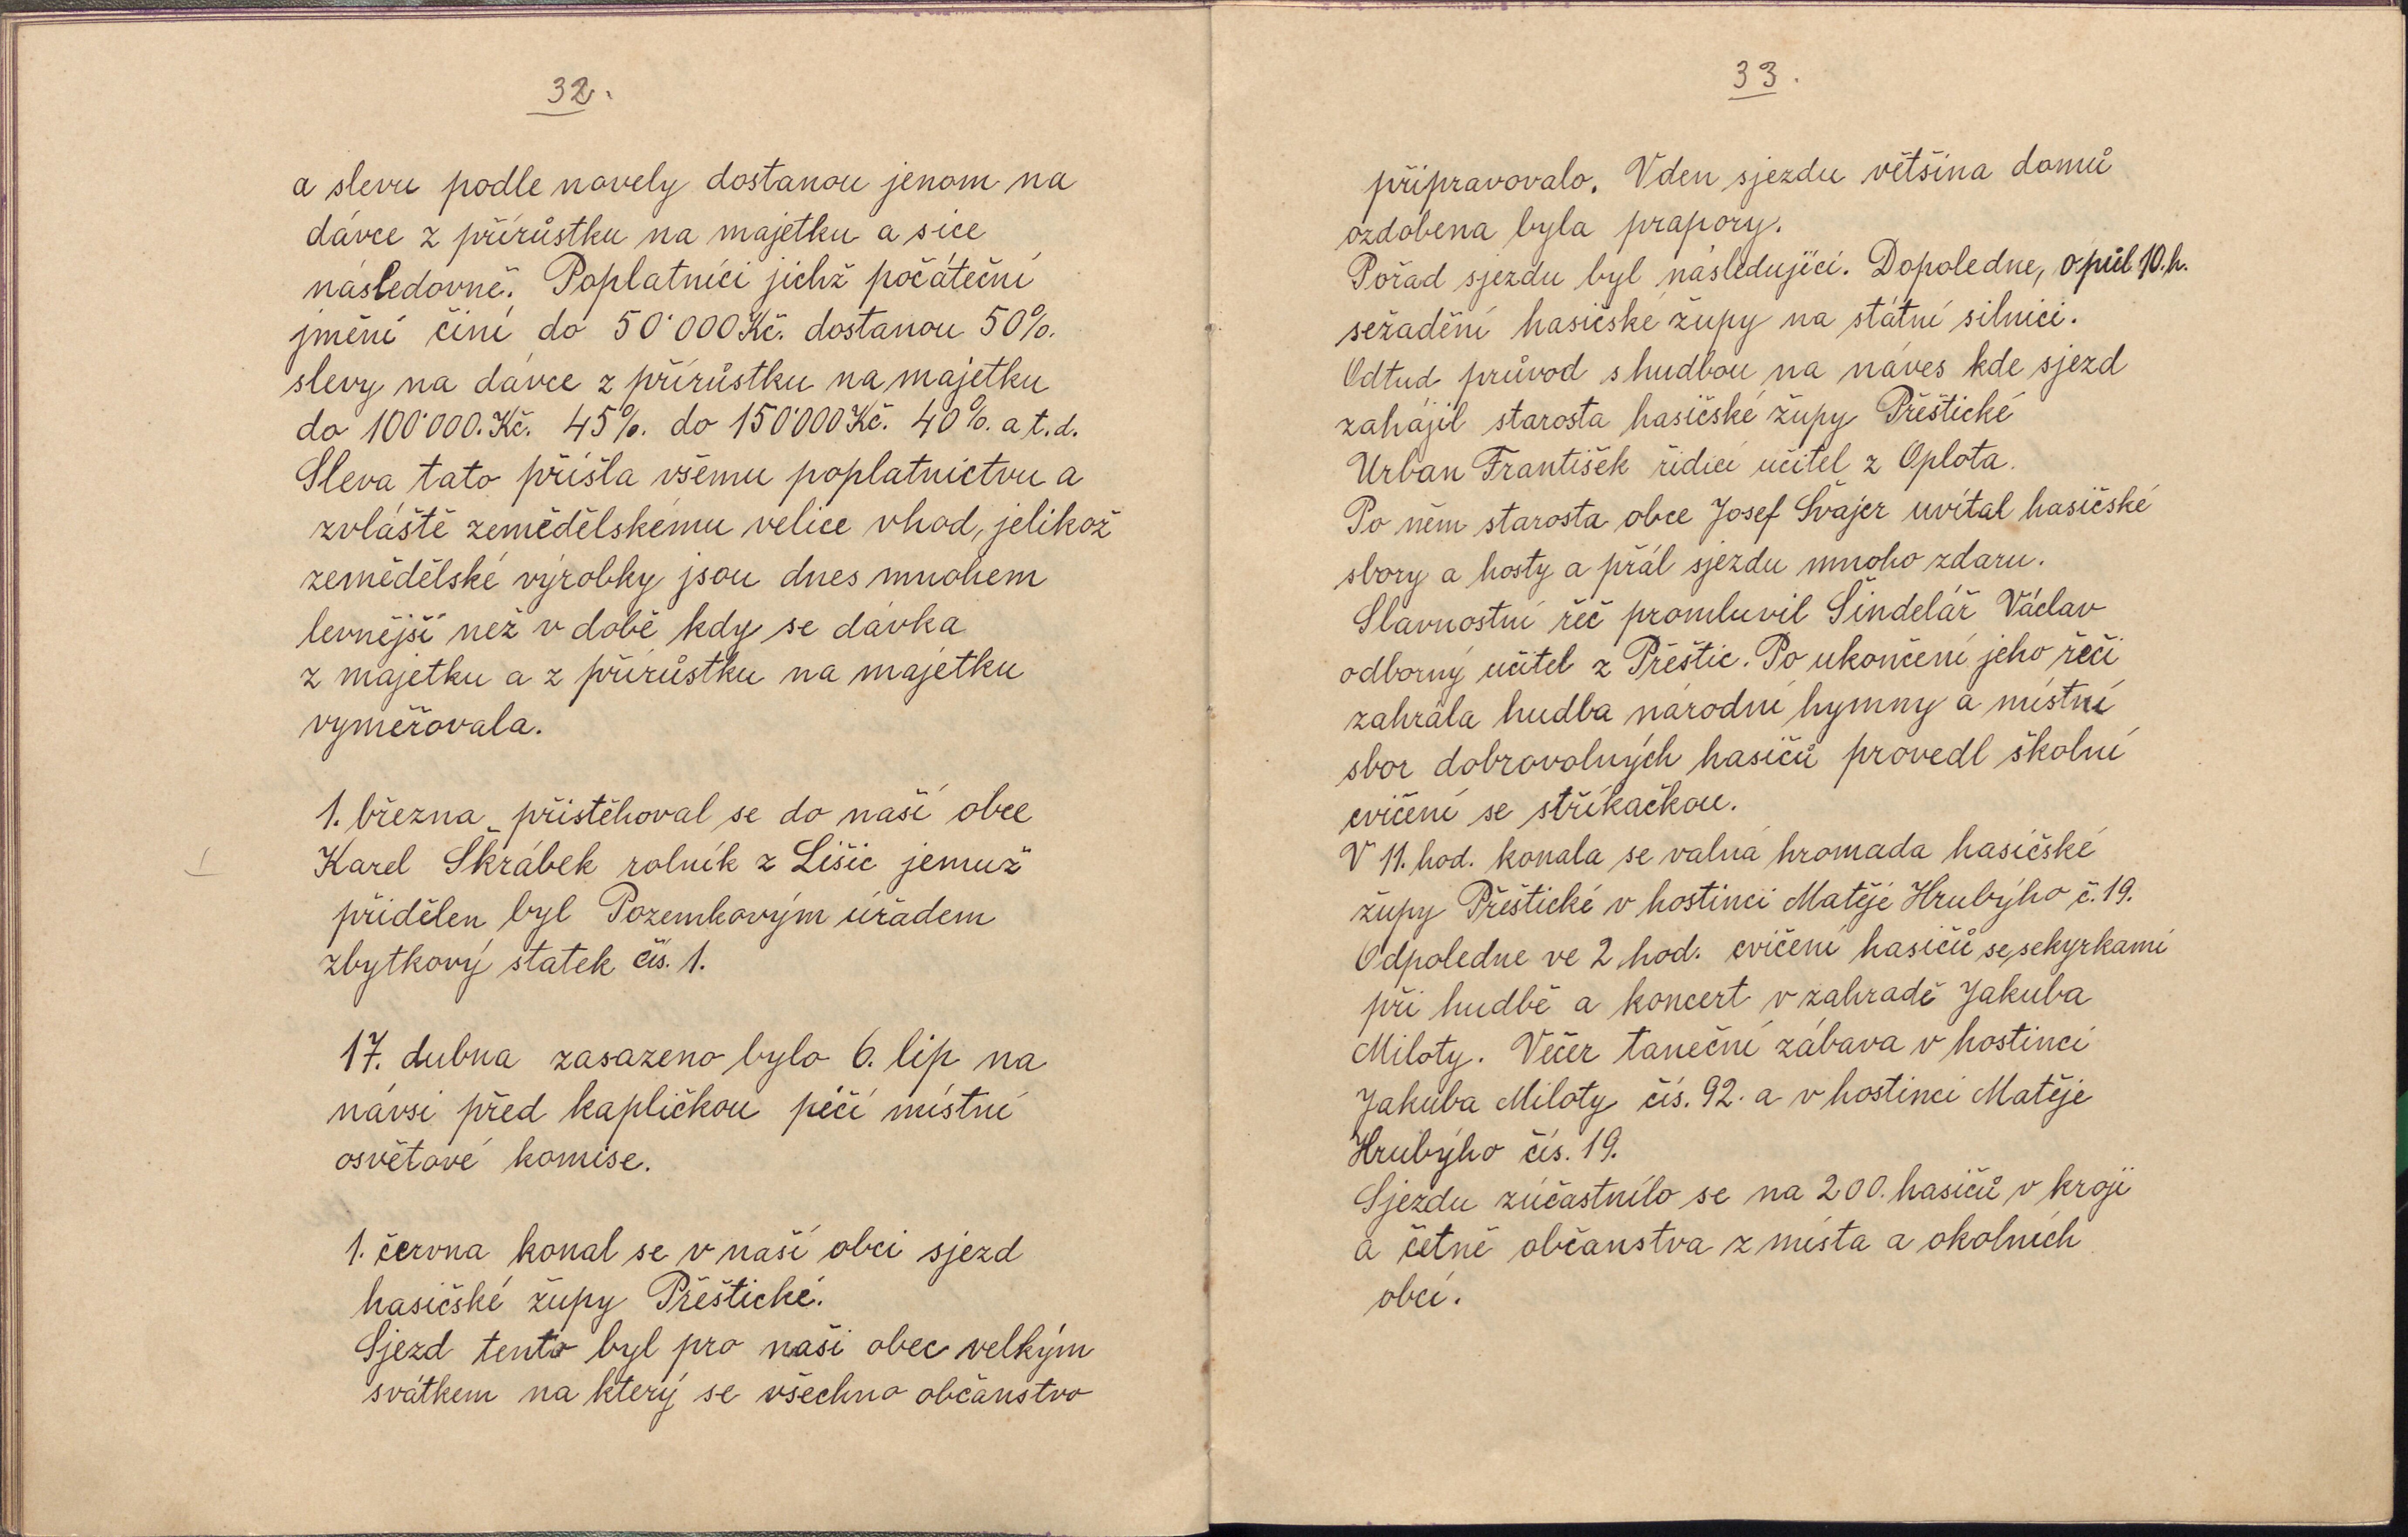 32.
a slevu podle novely dostanou jenom na
dávce z přírůstku na majetku a sice
následovně. Poplatníci jichž počáteční
jmění činí do 50˙000 Kč. dostanou 50%.
slevy na dávce z přírůstku na majetku
do 100˙000. Kč. 45%. do 150˙000 Kč. 40%. a t. d.
Sleva tato přišla všemu poplatnictvu a
zvláště zemědělskému velice vhod, jelikož
zemědělské výrobky jsou dnes mnohem
levnější než v době kdy se dávka
z majetku a z přírůstku na majetku
vyměřovala.
1. března přistěhoval se do naší obce
Karel Škrábek rolník z Lišic jemuž
přidělen byl Pozemkovým úřadem
zbytkový statek čís. 1.
17. dubna zasazeno bylo 6. lip na
návsi před kapličkou péčí místní
osvětové komise.
1. června konal se v naší obci sjezd
hasičské župy Přeštické.
Sjezd tento byl pro naši obec velkým
svátkem na který se všechno občanstvo
33.
připravovalo. V den sjezdu většina domů
ozdobena byla prapory.
Pořad sjezdu byl následující. Dopoledne, o půl 10. h.
seřadění hasičské župy na státní silnici.
Odtud průvod s hudbou na náves kde sjezd
zahájil starosta hasičské župy Přeštické
Urban František řídící učitel z Oplota.
Po něm starosta obce Josef Švajer uvítal hasičské
sbory a hosty a přál sjezdu mnoho zdaru.
Slavnostní řeč promluvil Šindelář Václav
odborný učitel z Přeštic. Po ukončení jeho řeči
zahrála hudba národní hymny a místní
sbor dobrovolných hasičů provedl školní
cvičení se stříkačkou.
V 11. hod. konala se valná hromada hasičské
župy Přeštické v hostinci Matěje Hrubýho č. 19.
Odpoledne ve 2 hod. cvičení hasičů se sekyrkami
při hudbě a koncert v zahradě Jakuba
Miloty. Večer taneční zábava v hostinci
Jakuba Miloty čís. 92. a v hostinci Matěje
Hrubýho čís. 19.
Sjezdu zúčastnilo se na 200. hasičů v kroji
a četně občanstva z místa a okolních
obcí.